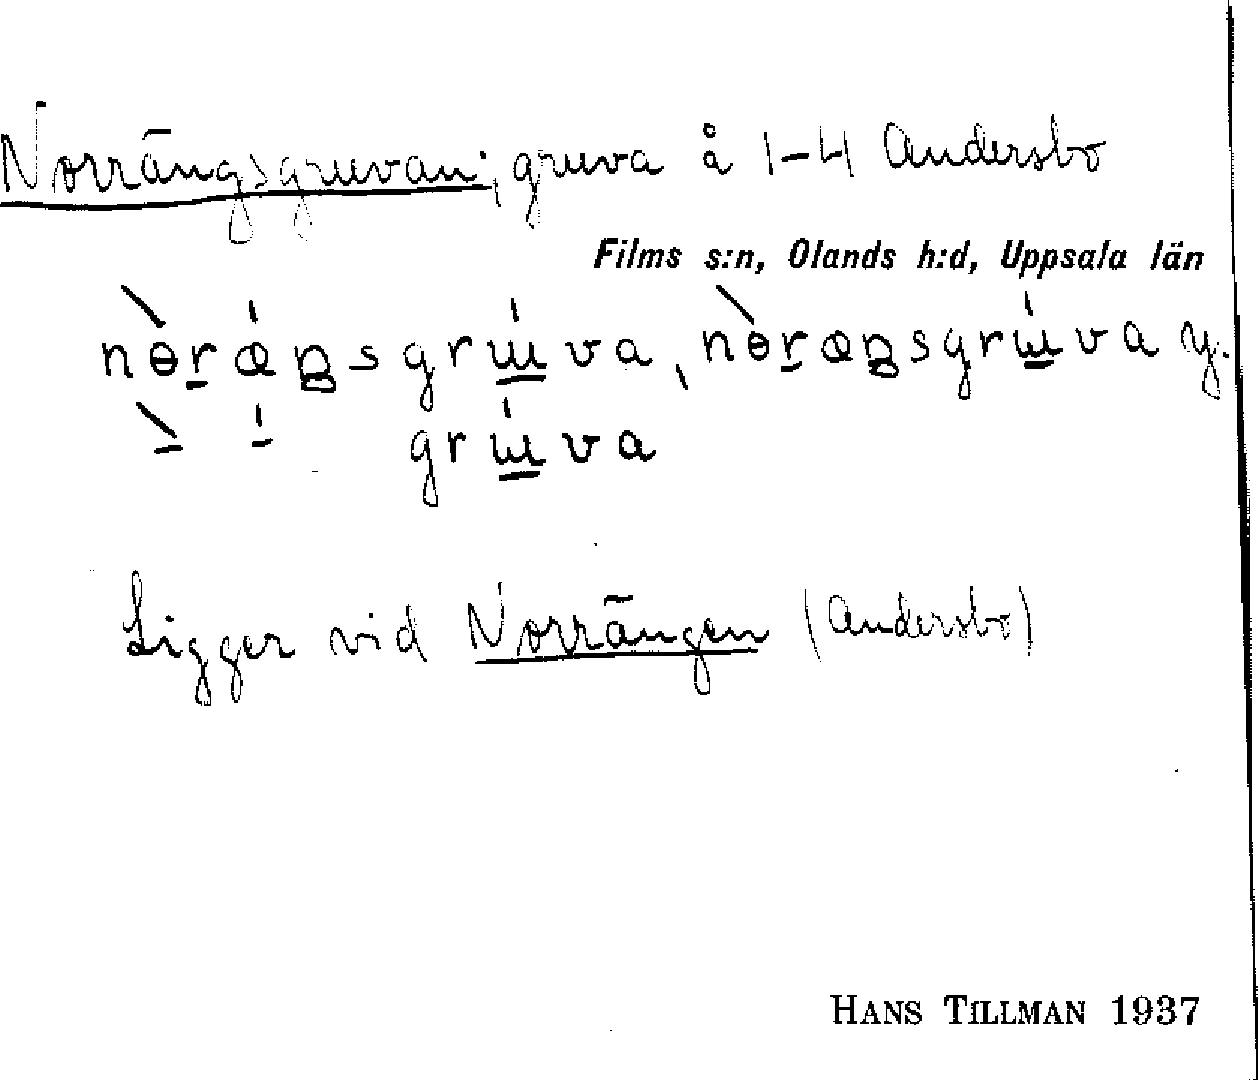 Norrängsgruvan; gruva å 1-4 Andersbo
Films s:n, Olands h:d, Uppsala län
nɵ̀rǽŋsgrɯ́va, nɵ̀ræŋsgrɯ́va y.
grɯ́va
Ligger vid Norrängen (Andersbo)
HANS TILLMAN 1937